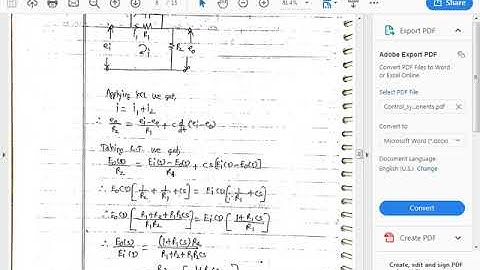 8 / 15
81.4%
R1
ei
i
R2
eo
Applying KCL we get,
i = i1+i2
∴ eo/R2 = (ei-eo)/R1 + c d/dt (ei-eo)
Taking L.T. we get,
Eo(s)/R2 = (Ei(s)-Eo(s))/R1 + cs[Ei(s)-Eo(s)]
∴ Eo(s)[1/R2 + 1/R1 + cs] = Ei(s)[1/R1 + cs]
∴ Eo(s)[(R1+R2+R1R2Cs)/(R1R2)] = Ei(s)[(1+R1Cs)/R1]
∴ Eo(s)/Ei(s) = (1+R1Cs)R2/(R1+R2+R1R2Cs)
Export PDF
Adobe Export PDF
Convert PDF Files to Word
or Excel Online
Select PDF File
Control_sy...onents.pdf
Convert to
Microsoft Word (*.docx)
Document Language:
English (U.S.) Change
Convert
Create PDF
Create, edit and sign PDF